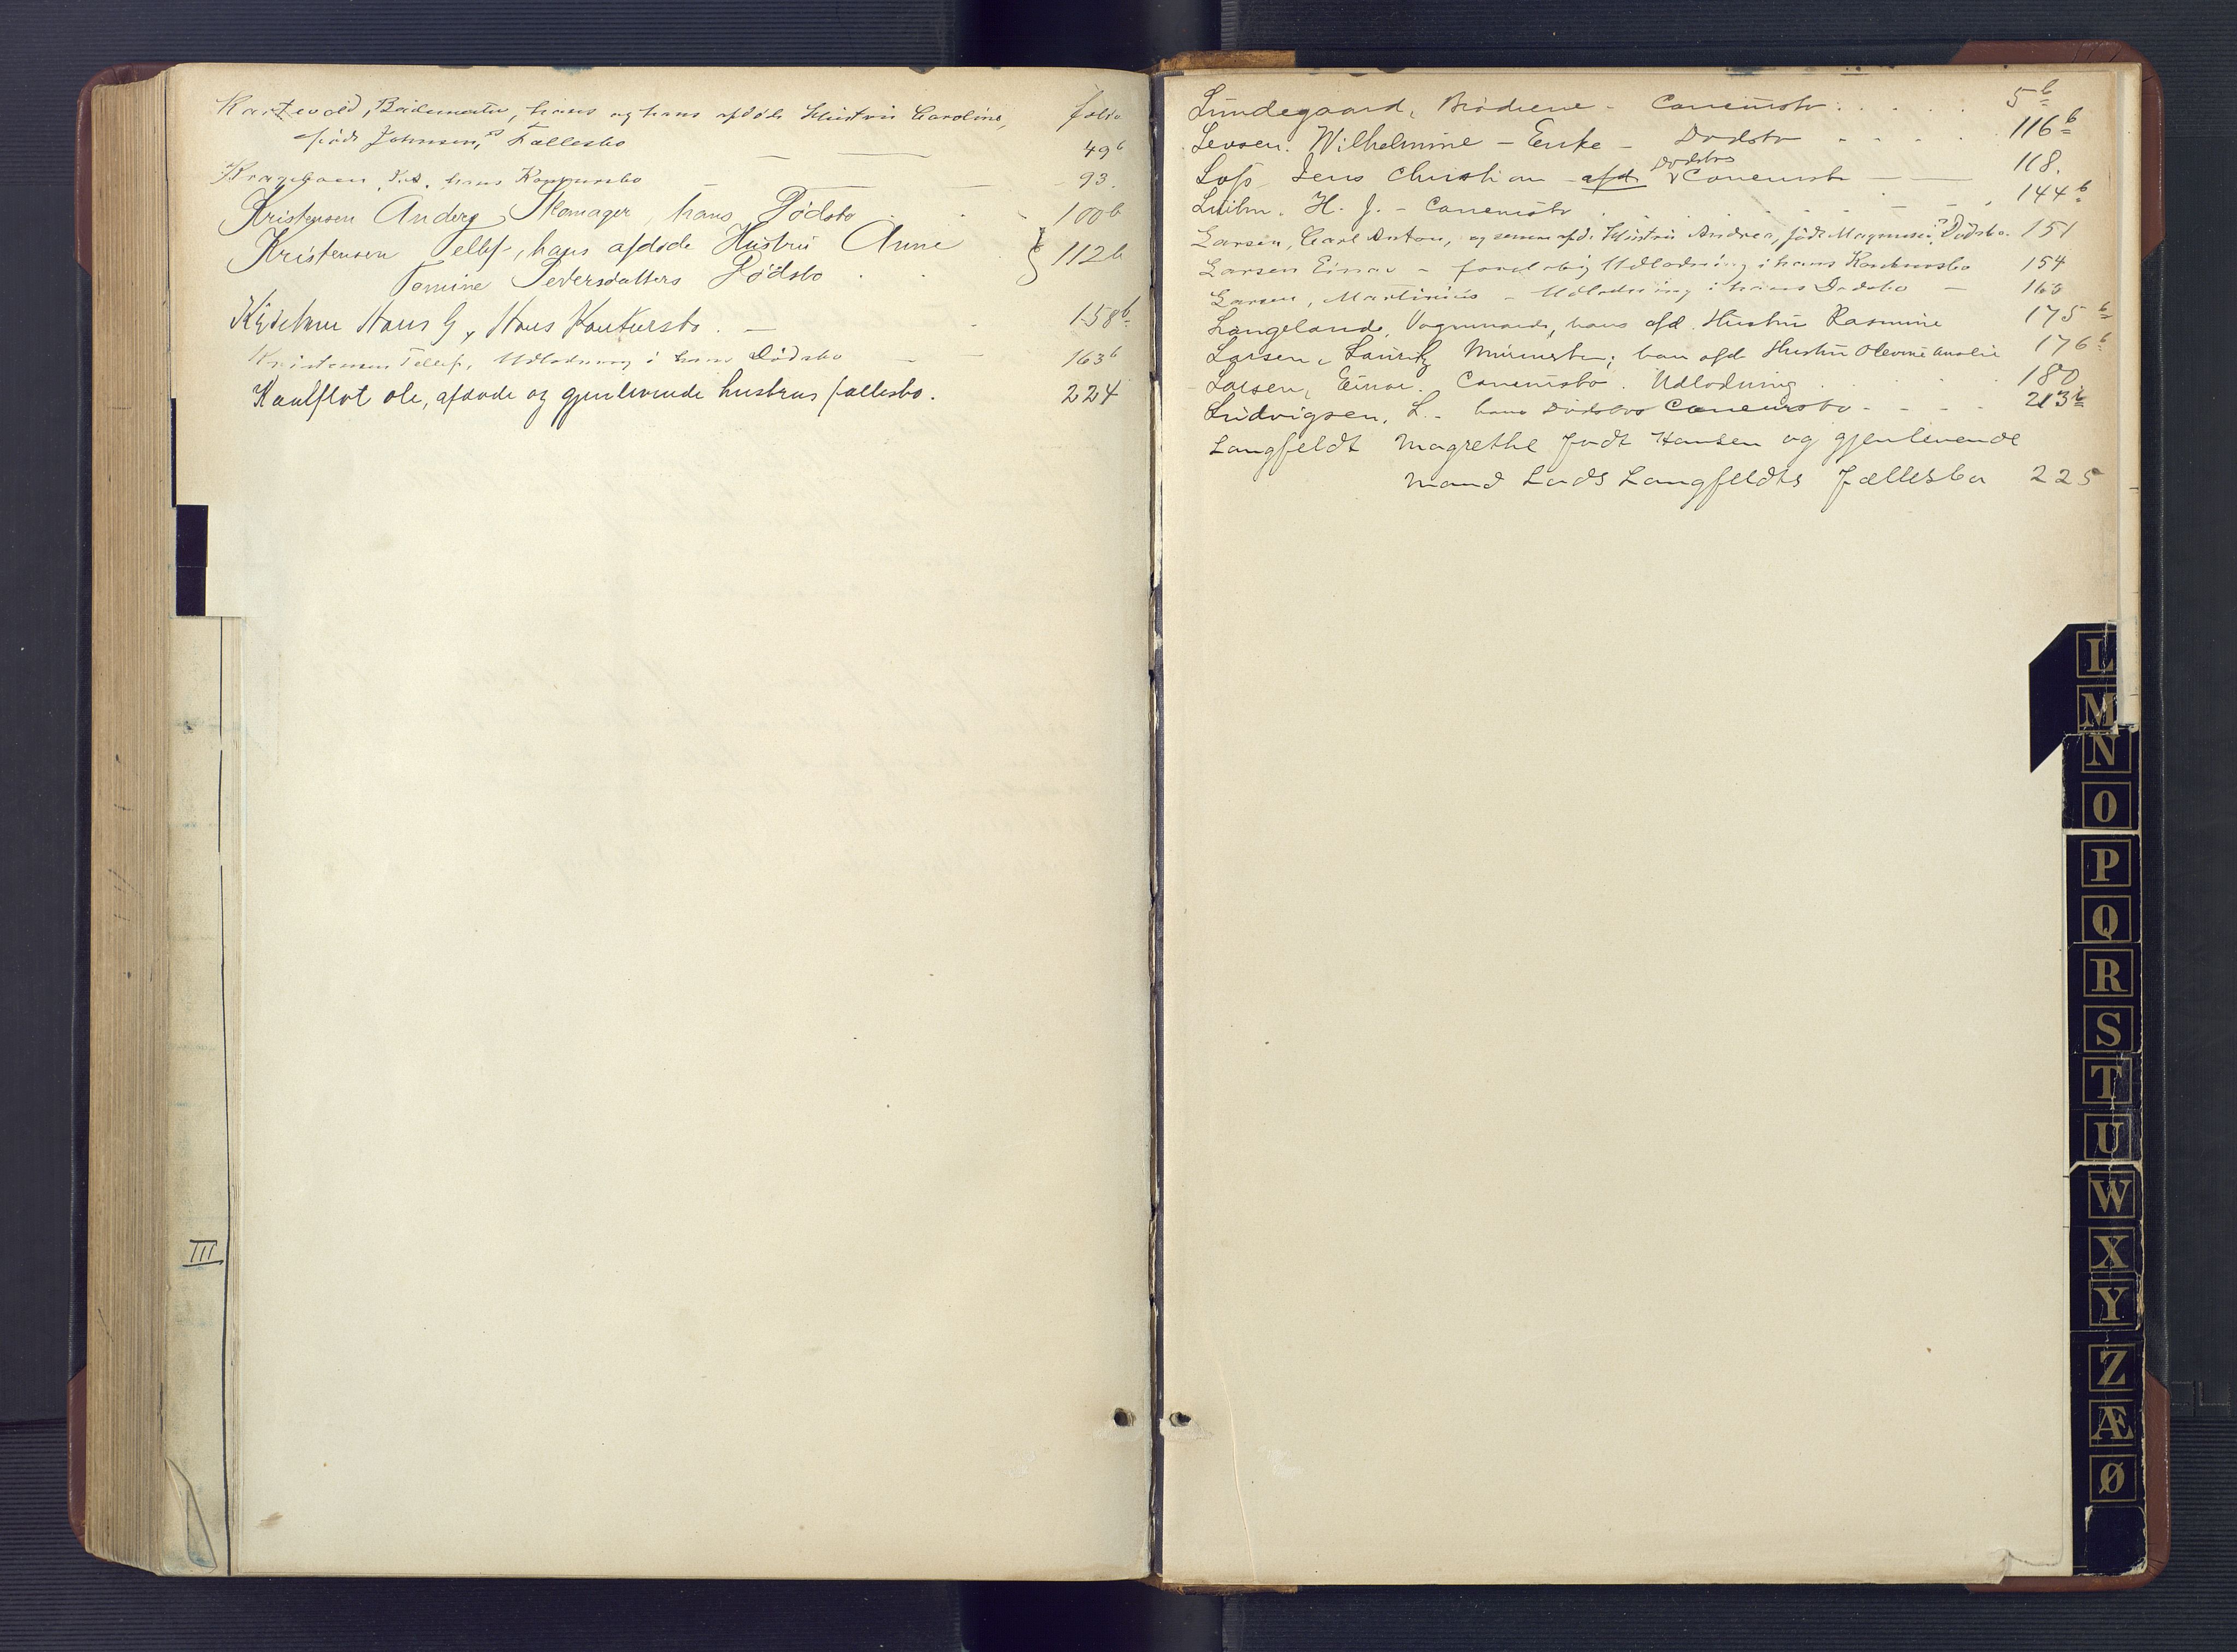 Kartevold, Bademester, hans og hans afdøde Hustru Caroline, folio
født Johnsen's Fællesbo — — 49b
Krageboen, hans Konkursbo — — — 93.
Kristensen Anders, Skomager, hans Dødsbo . . 100b
Kristensen Tellef, hans afdøde Hustru Anne } 112b
Tomine Pedersdatters Dødsbo . .
Hans G, Hans Konkursbo. — - 158b
Kristensen Tellef, Udlodning i hans Dødsbo — — 163b
Kaulflot ole, afdøde og gjenlevende hustrus fællesbo. 224
III
Lundegaard, Brødrene - Concursbo . . . . 5b
Levsen. Wilhelmine - Enke - Dødsbo - - - - 116b
Dødsbo
Loss Jens Christian afd. Concursb — — 118.
H. J. - Concursbo . . . . . 144b
Larsen, Carl Anton, og senere afd. Hustru Andrea, født Magnussen's Dødsbo. 151
Larsen Einar - foreløbig Udlodning i hans Konkursbo 154
Larsen, Martinius - Udlodning i hans Dødsbo — 160
Langelande, Vognmand, hans afd. Hustru Rasmine 175b
Larsen, Lauritz Murmester, hans afd. Hustru Olevine Amalie 176b
Larsen, Einar. Concursbo. Udlodning . . . . 180
Ludvigsen, L. - hans Dødsbos Concursbo - - - - 213b
Langfeldt Magrethe født Hansen og gjenlevende
Mand Lads Langfeldts Fællesbo 225
L
M
N
O
P
Q
R
S
T
U
W
X
Y
Z
Æ
Ø